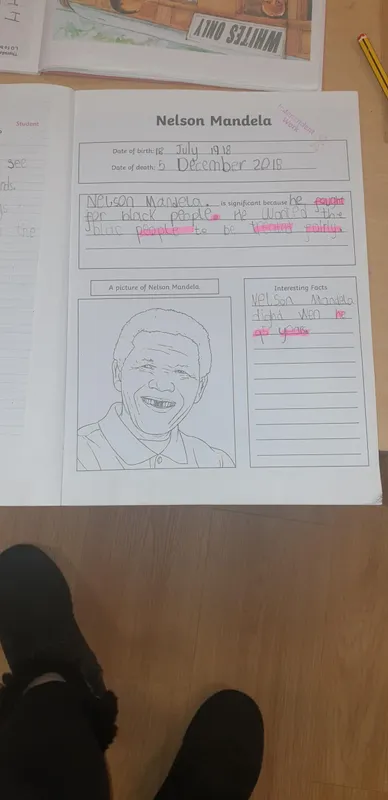 WHITES ONLY
Student
see
the
Nelson Mandela
Date of birth: 18 July 1918
Date of death: 5 December 2018
Nelson Mandela. is significant because he fought
for black people. He wanted the
blac people to be treated fairly.
A picture of Nelson Mandela.
Interesting Facts
Nelson Mandela
dighd wen he